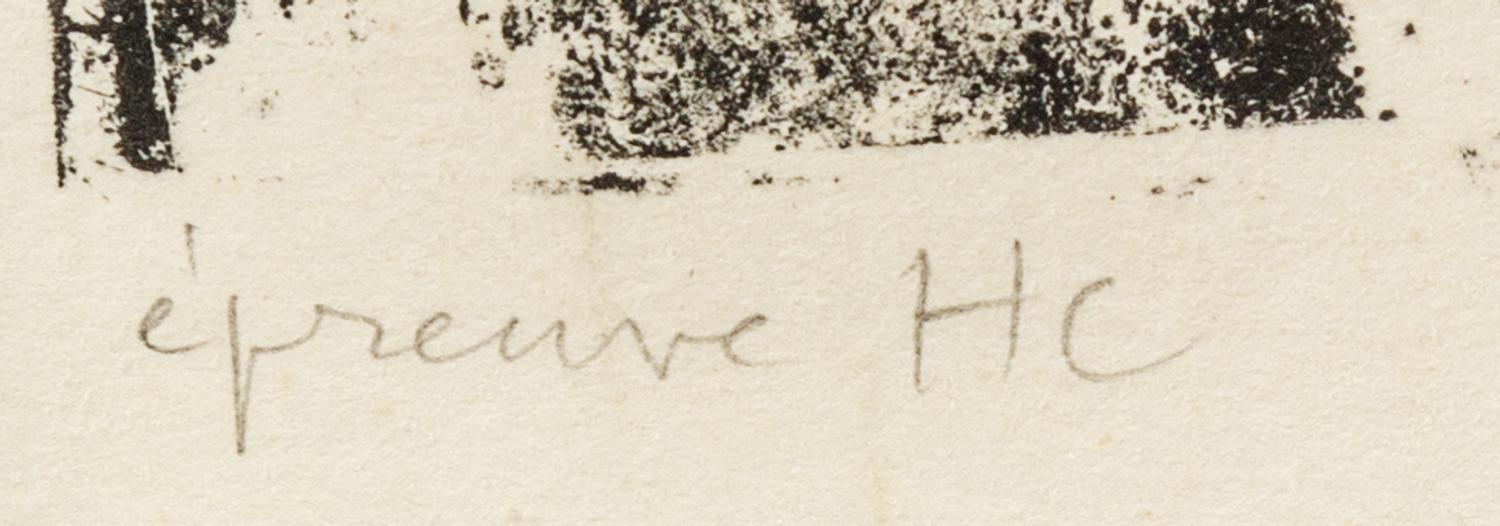 épreuve HC